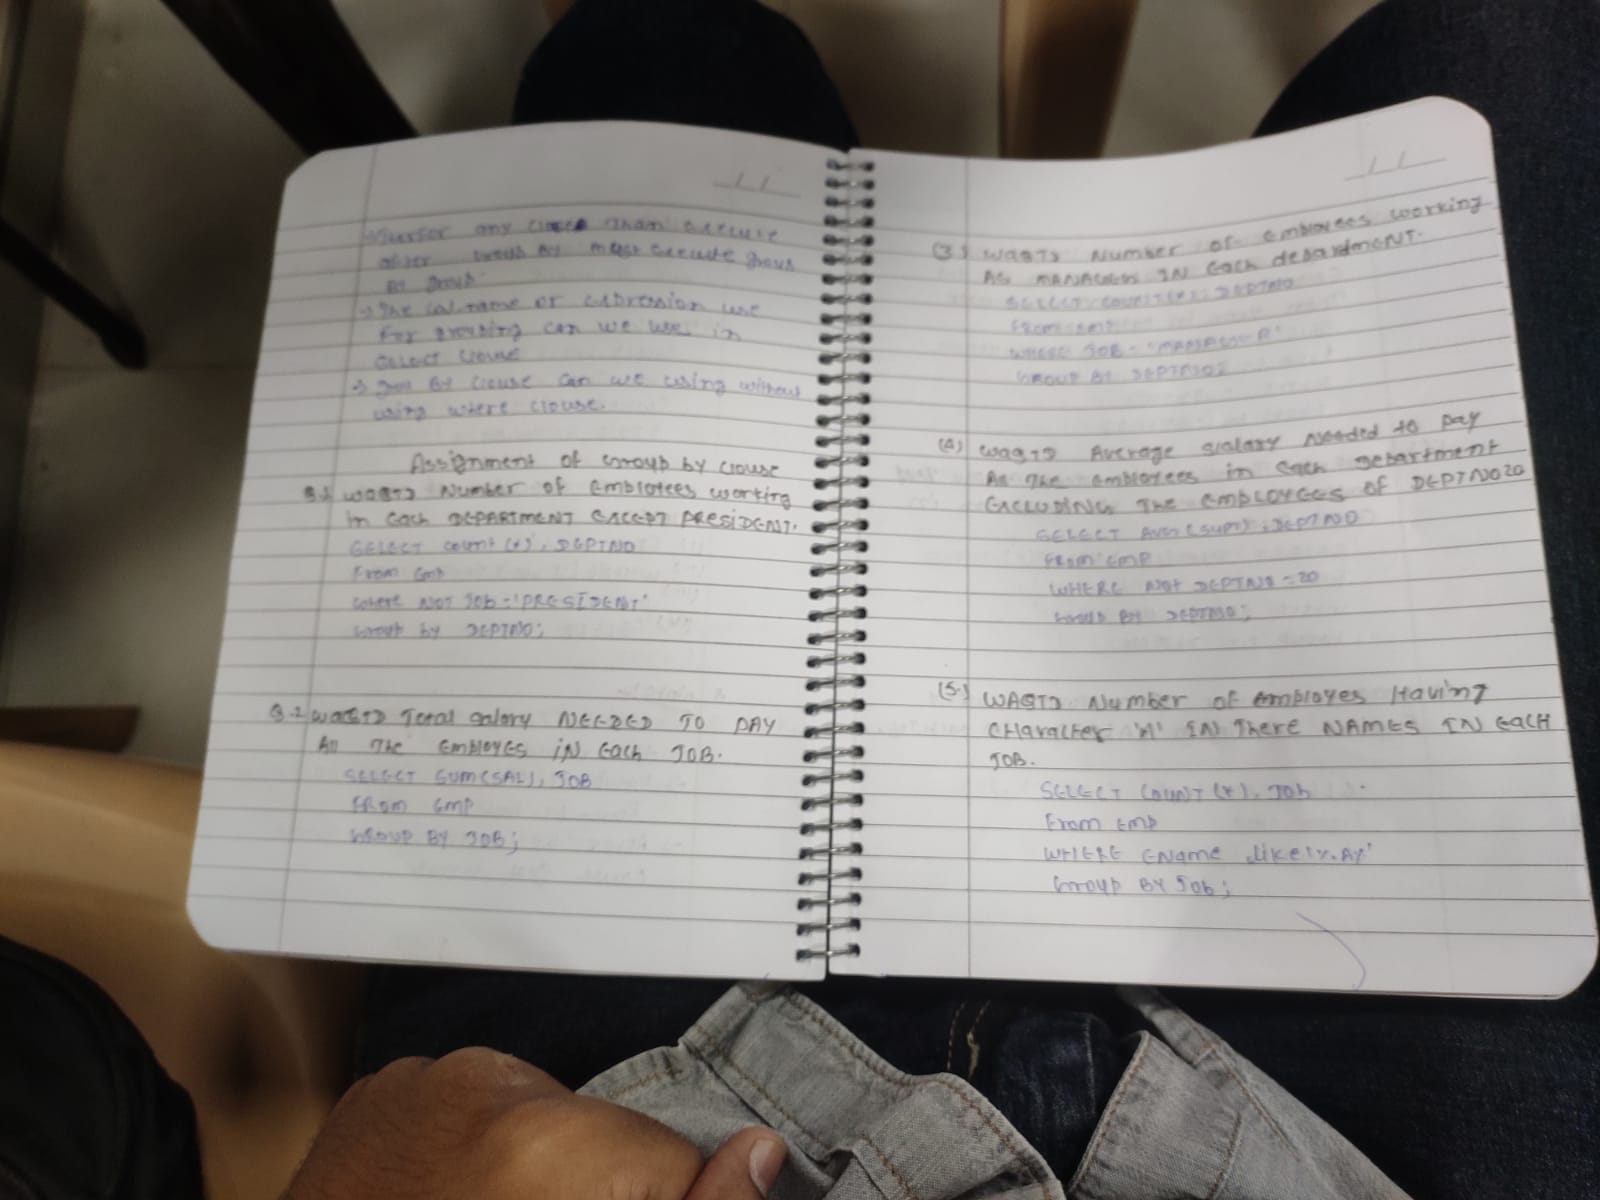 any clause than execute
after Group By must execute group
By group
→ The col-name or expression use
For grouping can we use in
SELECT clouse
→ By clouse can we using without
using where clouse.
Assignment of Group by clouse
Q.1 WAQTD Number of Employees working
in Each DEPARTMENT EXCEPT PRESIDENT.
SELECT count (*), DEPTNO
From Emp
where NOT Job = 'PRESIDENT'
Group by DEPTNO;
Q.2 WAQTD Total salary NEEDED TO PAY
All The Employes in Each JOB.
SELECT SUM(SAL), JOB
FROM EMP
GROUP BY JOB;
(3) WAQTD Number of Employees working
As MANAGER IN Each department.
SELECT COUNT(*), DEPTNO
From Emp
WHERE JOB = 'MANAGER'
GROUP BY DEPTNO;
(4) WAQTD Average salary Needed to Pay
All The Employees in Each Department
EXCLUDING The EMPLOYEES OF DEPTNO 20
SELECT , DEPTNO
FROM EMP
WHERE NOT DEPTNO = 20
Group BY DEPTNO;
(5.) WAQTD Number of Employes Having
CHaracter 'A' IN There NAMES IN EACH
JOB.
SELECT COUNT (*), Job
From Emp
WHERE Ename like '%A%'
Group BY Job;